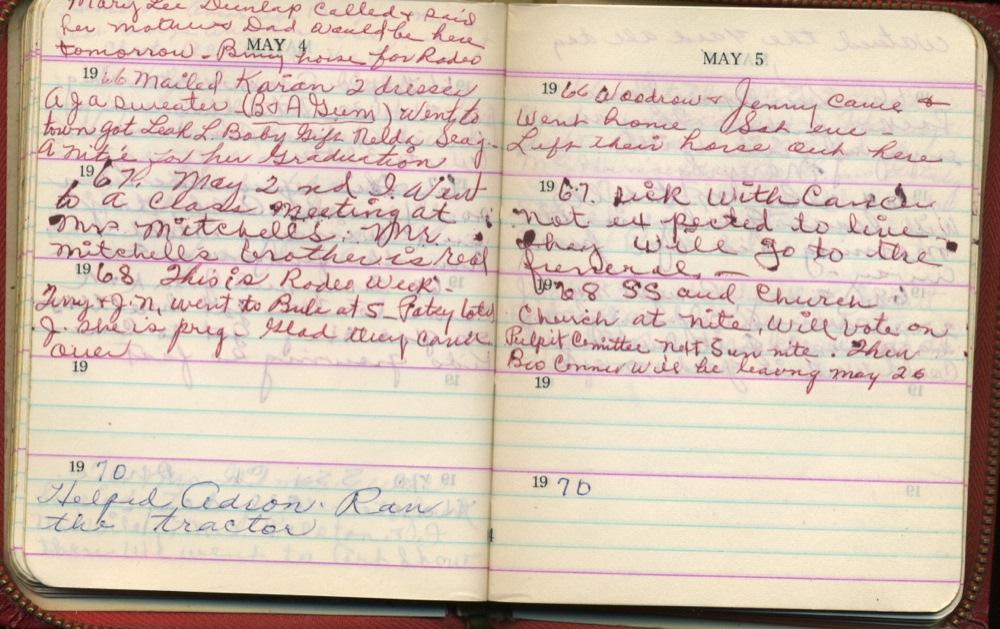 Mary Lee Dunlap called & said
her mother & Dad would be here
tomorrow - Bring horse for Rodeo
MAY 4
1966 Mailed Karan 2 dresses
a J a sweater (B & A Gum) Went to
town got Leah L. Baby Gift Nelda Seag-
a nitie for her Graduation
1967. May 2nd I went
to a class meeting at
Mrs Mitchells. Mr.
Mitchells brother is real
1968 This is Rodeo Week
Terry & J.N. went to Bula at 5 - Patsy
J. She is preg Glad they came
over
19
1970
Helped Adson. Ran
the tractor
MAY 5
1966 Woodrow & Jenny came &
went home Sat eve -
Left their horse out here
1967. sick With Cancer
not expected to live
they will go to the
funeral -
1968 SS and Church
Church at nite. Will vote on
Pulpit Comittee next Sun nite. Then
Bro Conner will be leaving May 26
19
1970